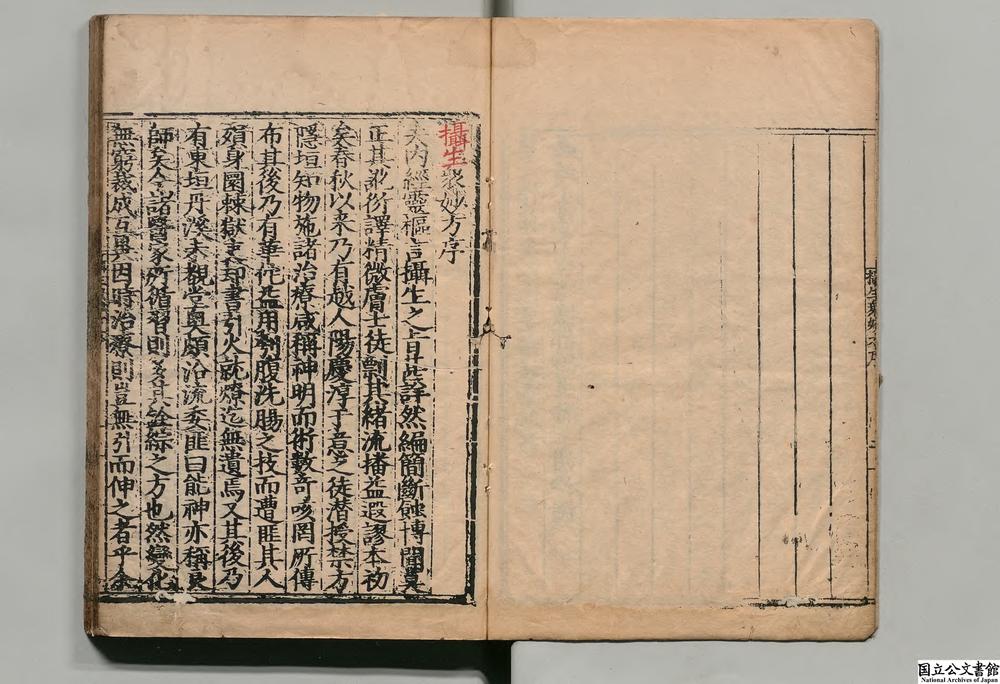 攝生衆妙方序
夫内經靈樞言攝生之旨悉詳然編簡斷蝕博聞莫
正其訛衍譯精微膚士徒剽其緒流播益遐謬本初
矣春秋以来乃有越人陽慶淳于意之徒潜授禁方
隱垣知物施諸治療咸稱神明而術數竒咳罔所傳
布其後乃有華佗益用刳腹洗腸之技而遭匪其人
殞身圜棘獄吏却書引火就燎迄無遺焉又其後乃
有東垣丹溪未覩堂奥頗沿流委匪曰能神亦稱良
師矣今諸醫家所循習則多其詮綜之方也然變化
無窮裁成互異因時治療則豈無引而伸之者乎余
国立公文書館
National Archives of Japan